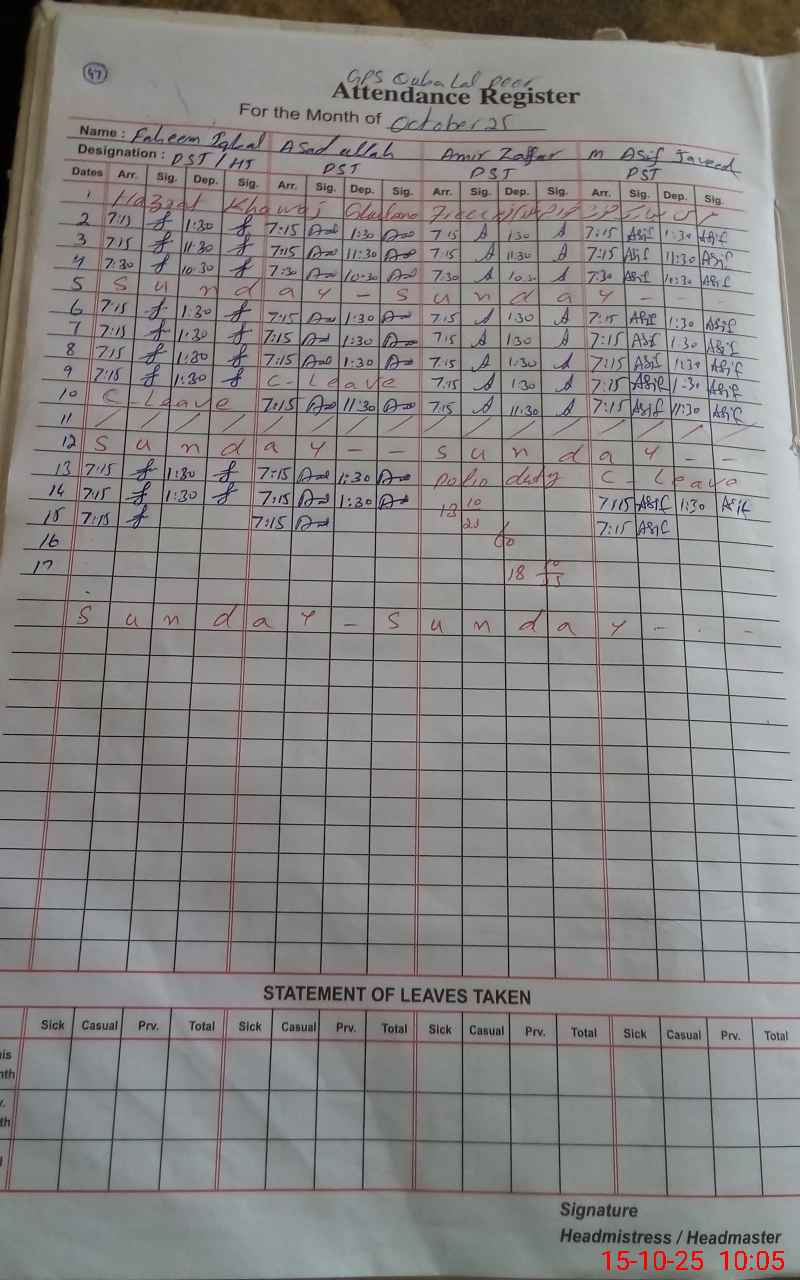 47
GPS Quba Lal peer
Attendance Register
For the Month of October 25
Name : Faheem Iqbal Asad ullah Amir Zaffar M Asif Javeed
Designation : PST / HT PST PST PST
Dates Arr. Sig. Dep. Sig. Arr. Sig. Dep. Sig. Arr. Sig. Dep. Sig. Arr. Sig. Dep. Sig.
1 Hazrat Khawaj Ghulam
2 7:15 1:30 7:15 1:30 7:15 1:30 7:15 Asif 1:30 Asif
3 7:15 11:30 7:15 11:30 7:15 11:30 7:15 Asif 11:30 Asif
4 7:30 10:30 7:30 10:30 7:30 10:30 7:30 Asif 10:30 Asif
5 S u n d a y - S u n d a y - - -
6 7:15 1:30 7:15 1:30 7:15 1:30 7:15 Asif 1:30 Asif
7 7:15 1:30 7:15 1:30 7:15 1:30 7:15 Asif 1:30 Asif
8 7:15 1:30 7:15 1:30 7:15 1:30 7:15 Asif 1:30 Asif
9 7:15 1:30 C-Leave 7:15 1:30 7:15 Asif 1:30 Asif
10 C-Leave 7:15 11:30 7:15 11:30 7:15 Asif 11:30 Asif
11 / / / / / / / / / / / / / / / /
12 S u n d a y - - S u n d a y - -
13 7:15 1:30 7:15 1:30 Polio duty C - Leave
14 7:15 1:30 7:15 1:30 13 10 7:15 Asif 1:30 Asif
15 7:15 7:15 25 to 7:15 Asif
16
17 18 10/25
S u n d a y - S u n d a y - - -
STATEMENT OF LEAVES TAKEN
Sick Casual Prv. Total Sick Casual Prv. Total Sick Casual Prv. Total Sick Casual Prv. Total
Signature
Headmistress / Headmaster
15-10-25 10:05